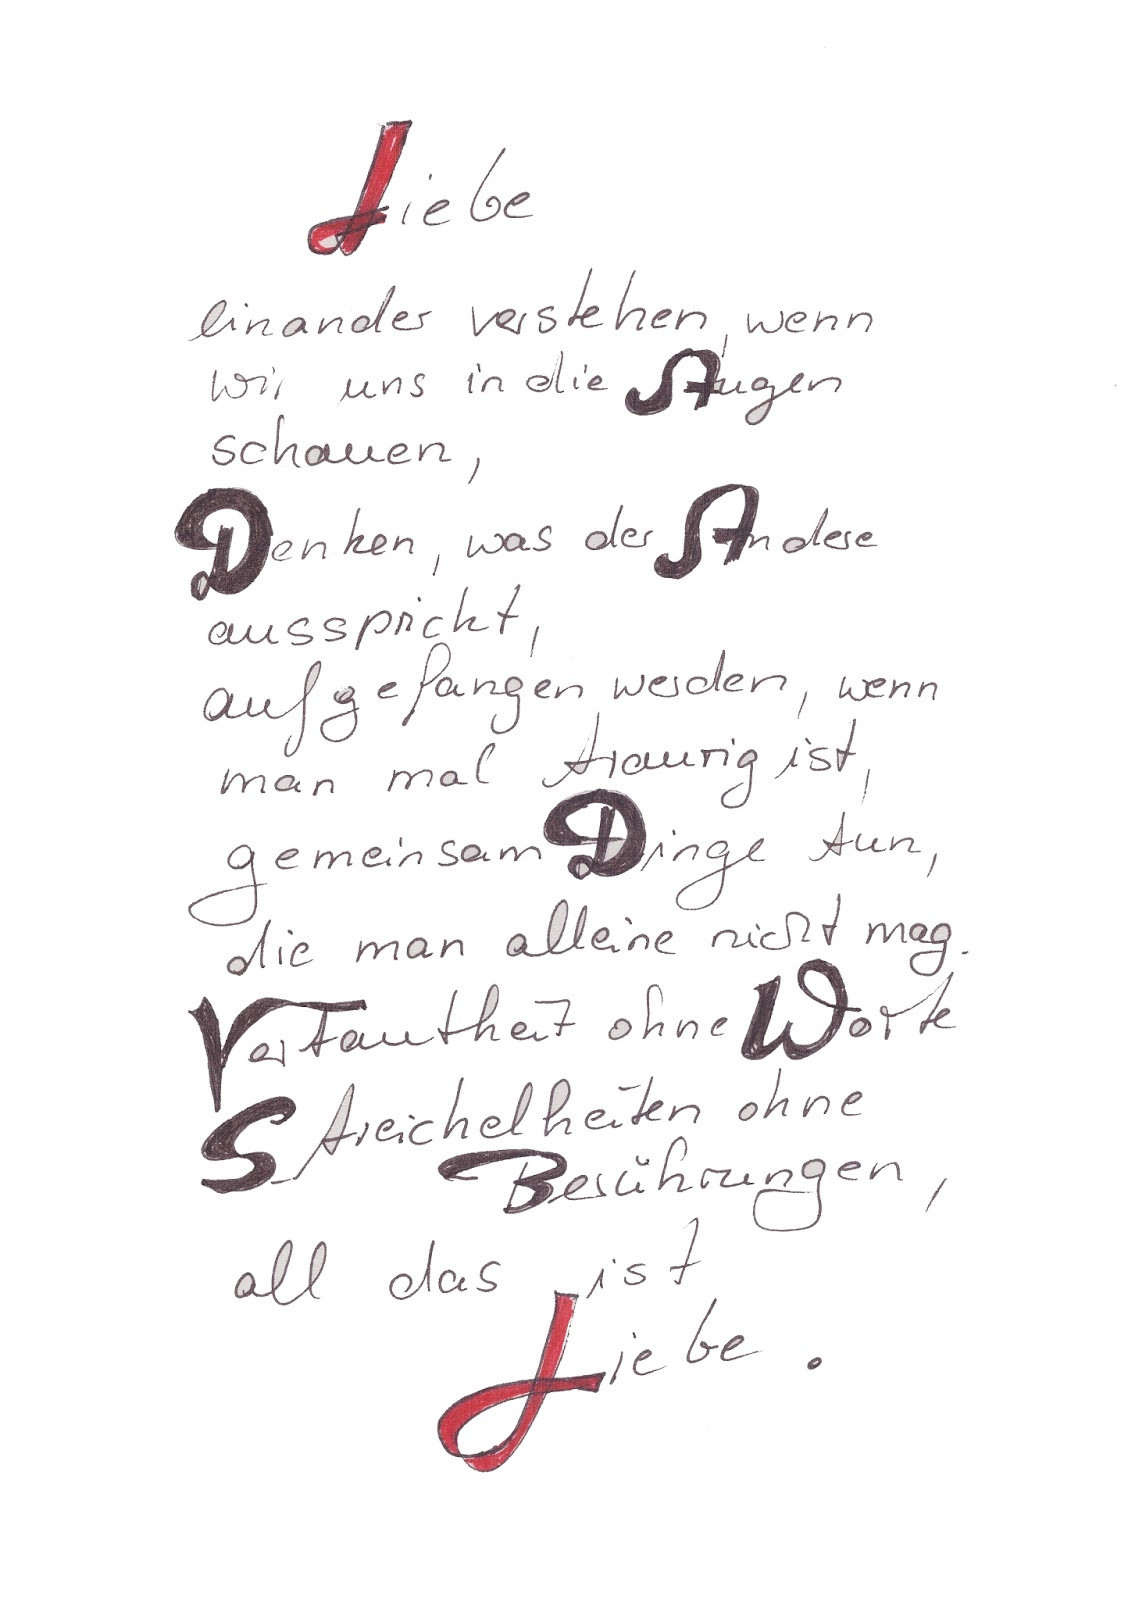 Liebe
einander verstehen, wenn
wir uns in die Augen
schauen,
Denken, was der Andere
ausspricht,
aufgefangen werden, wenn
man mal traurig ist,
gemeinsam Dinge tun,
die man alleine nicht mag.
Vertautheit ohne Worte
Streichelheiten ohne
Berührungen,
all das ist
Liebe.